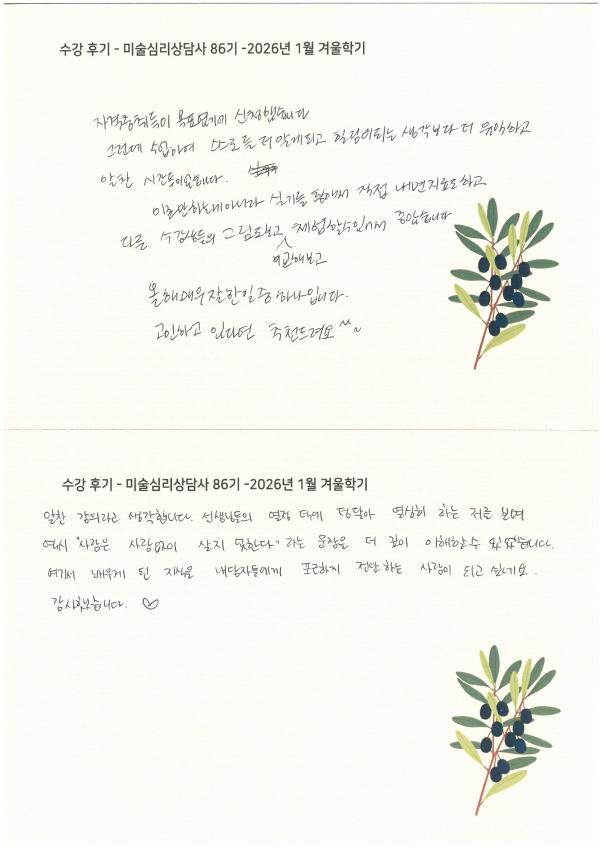 수강 후기 - 미술심리상담사 86기 -2026년 1월 겨울학기
자격증취득이 목표였기에 신청했습니다
그런데 수업하며 스스로를 더 알게되고 힐링이되는 생각보다 더 유익하고
알찬 시간들이었습니다.
이론만하는게아니라 실기를 통해서 직접 내면치료도하고
다른 수강생들의 그림도보고 체험할수있어서 좋았습니다
비교해보고
올해매우잘한일 중 하나입니다.
고민하고 있다면 추천드려요 ^^~
수강 후기 - 미술심리상담사 86기 -2026년 1월 겨울학기
알찬 강의라고 생각합니다. 선생님들의 열정 덕에 덩달아 열심히 하는 저를 보며
역시 "사람은 사람없이 살지 못한다" 라는 문장을 더 깊이 이해할 수 있었습니다.
여기서 배우게 된 지식을 내담자들에게 포근하게 전달하는 사람이 되고 싶네요.
감사했습니다. ♡